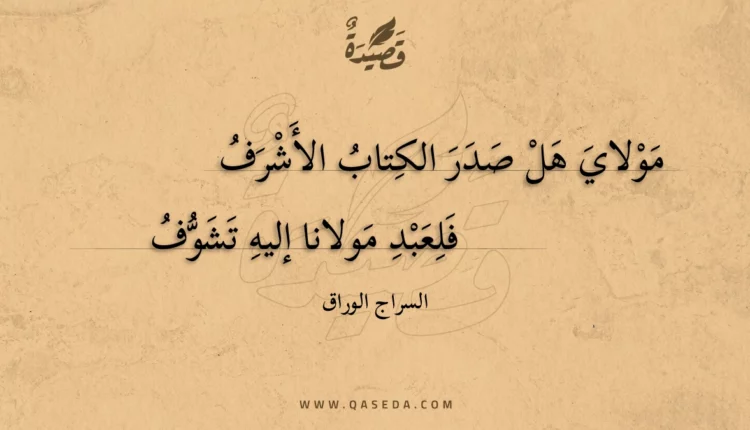 قَصِيْدَةٌ
مَوْلايَ هَلْ صَدَرَ الكِتابُ الأَشْرَفُ
فَلِعَبْدِ مَولانا إليهِ تَشَوُّفُ
السراج الوراق
WWW.QASEDA.COM